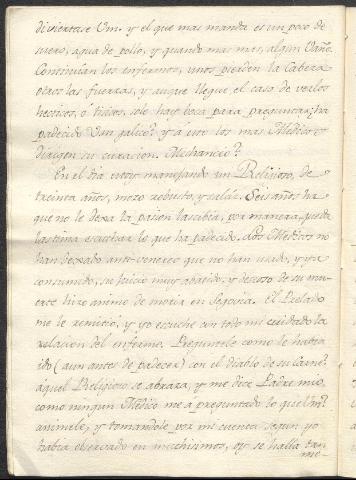 diviertase Vm. y el que mas manda es un poco de
suero, agua de pollo, y quando mas mas, algun Baño.
Continúan los enfermos, unos pierden la Cabeza
otros las fuerzas, y aunque llegue el caso de verlos
hecticos, ó tisicos, solo hay boca para preguntar; ha
padecido Vm galico? y à esto los mas Medicos
dirigen su curacion.
En el dia estoy manejando un Religioso, de
treinta años, mozo robusto, y Seis años ha
que no le dexa la pasion lasciba, por manera, que da
lastima escuchar lo que ha padecido. Los Medicos no
han dexado anti-venereo que no han usado, y ya
consumido, su juicio muy abatido, y deseoso de su mu-
erte hizo animo de morir en Segovia. El Prelado
me le remitió, y yo escuche con todo mi cuidado la
relacion del enfermo. Preguntele como le habia
ido (aun antes de padecer) con el diablo de su Carne?
aquel Religioso se abraza, y me dice Padre mio,
como ningun Medico me á preguntado lo que Vm?
animele, y tomandole por mi cuenta segun yo
habia observado en muchisimos, oy se halla tan
me-